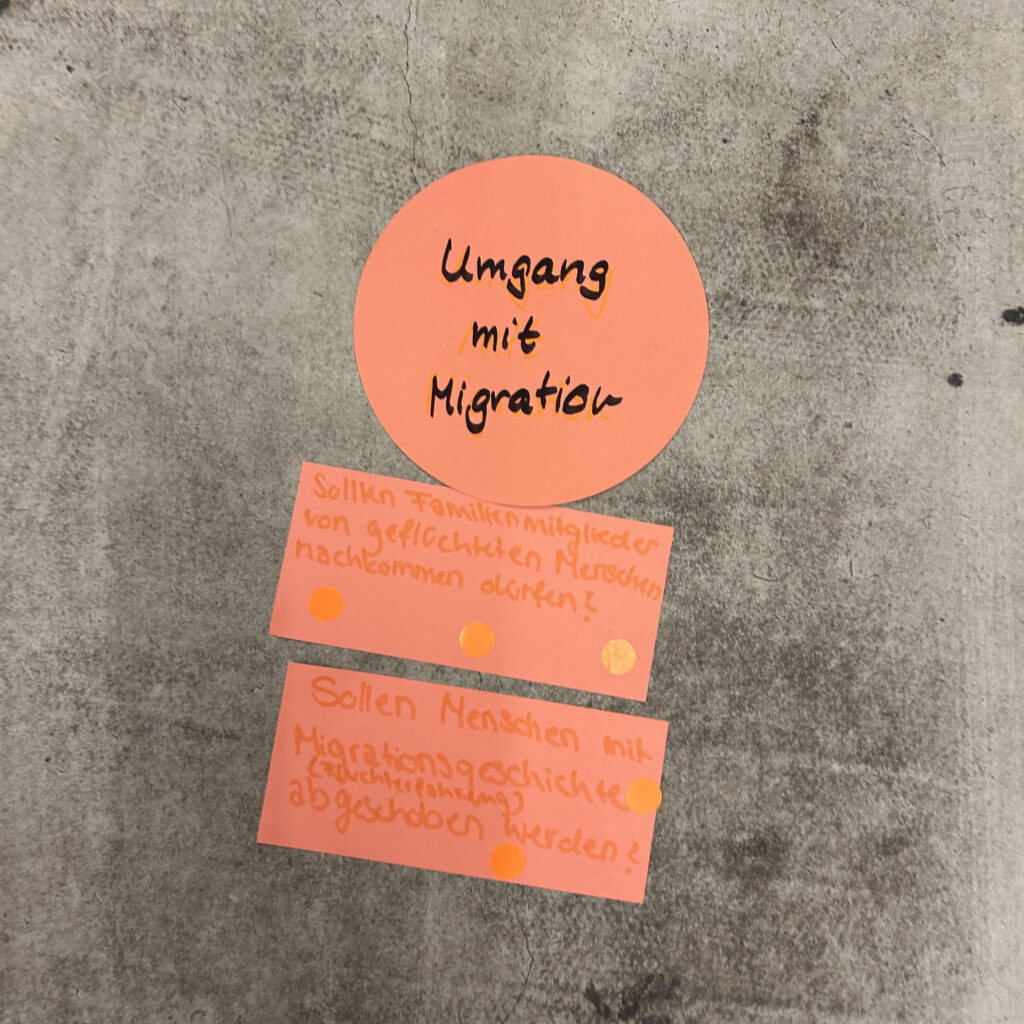 Umgang
mit
Migration
Sollen Familienmitglieder
von geflüchteten Menschen
nachkommen dürfen?
Sollen Menschen mit
Migrationsgeschichte
(Fluchterfahrung)
abgeschoben werden?